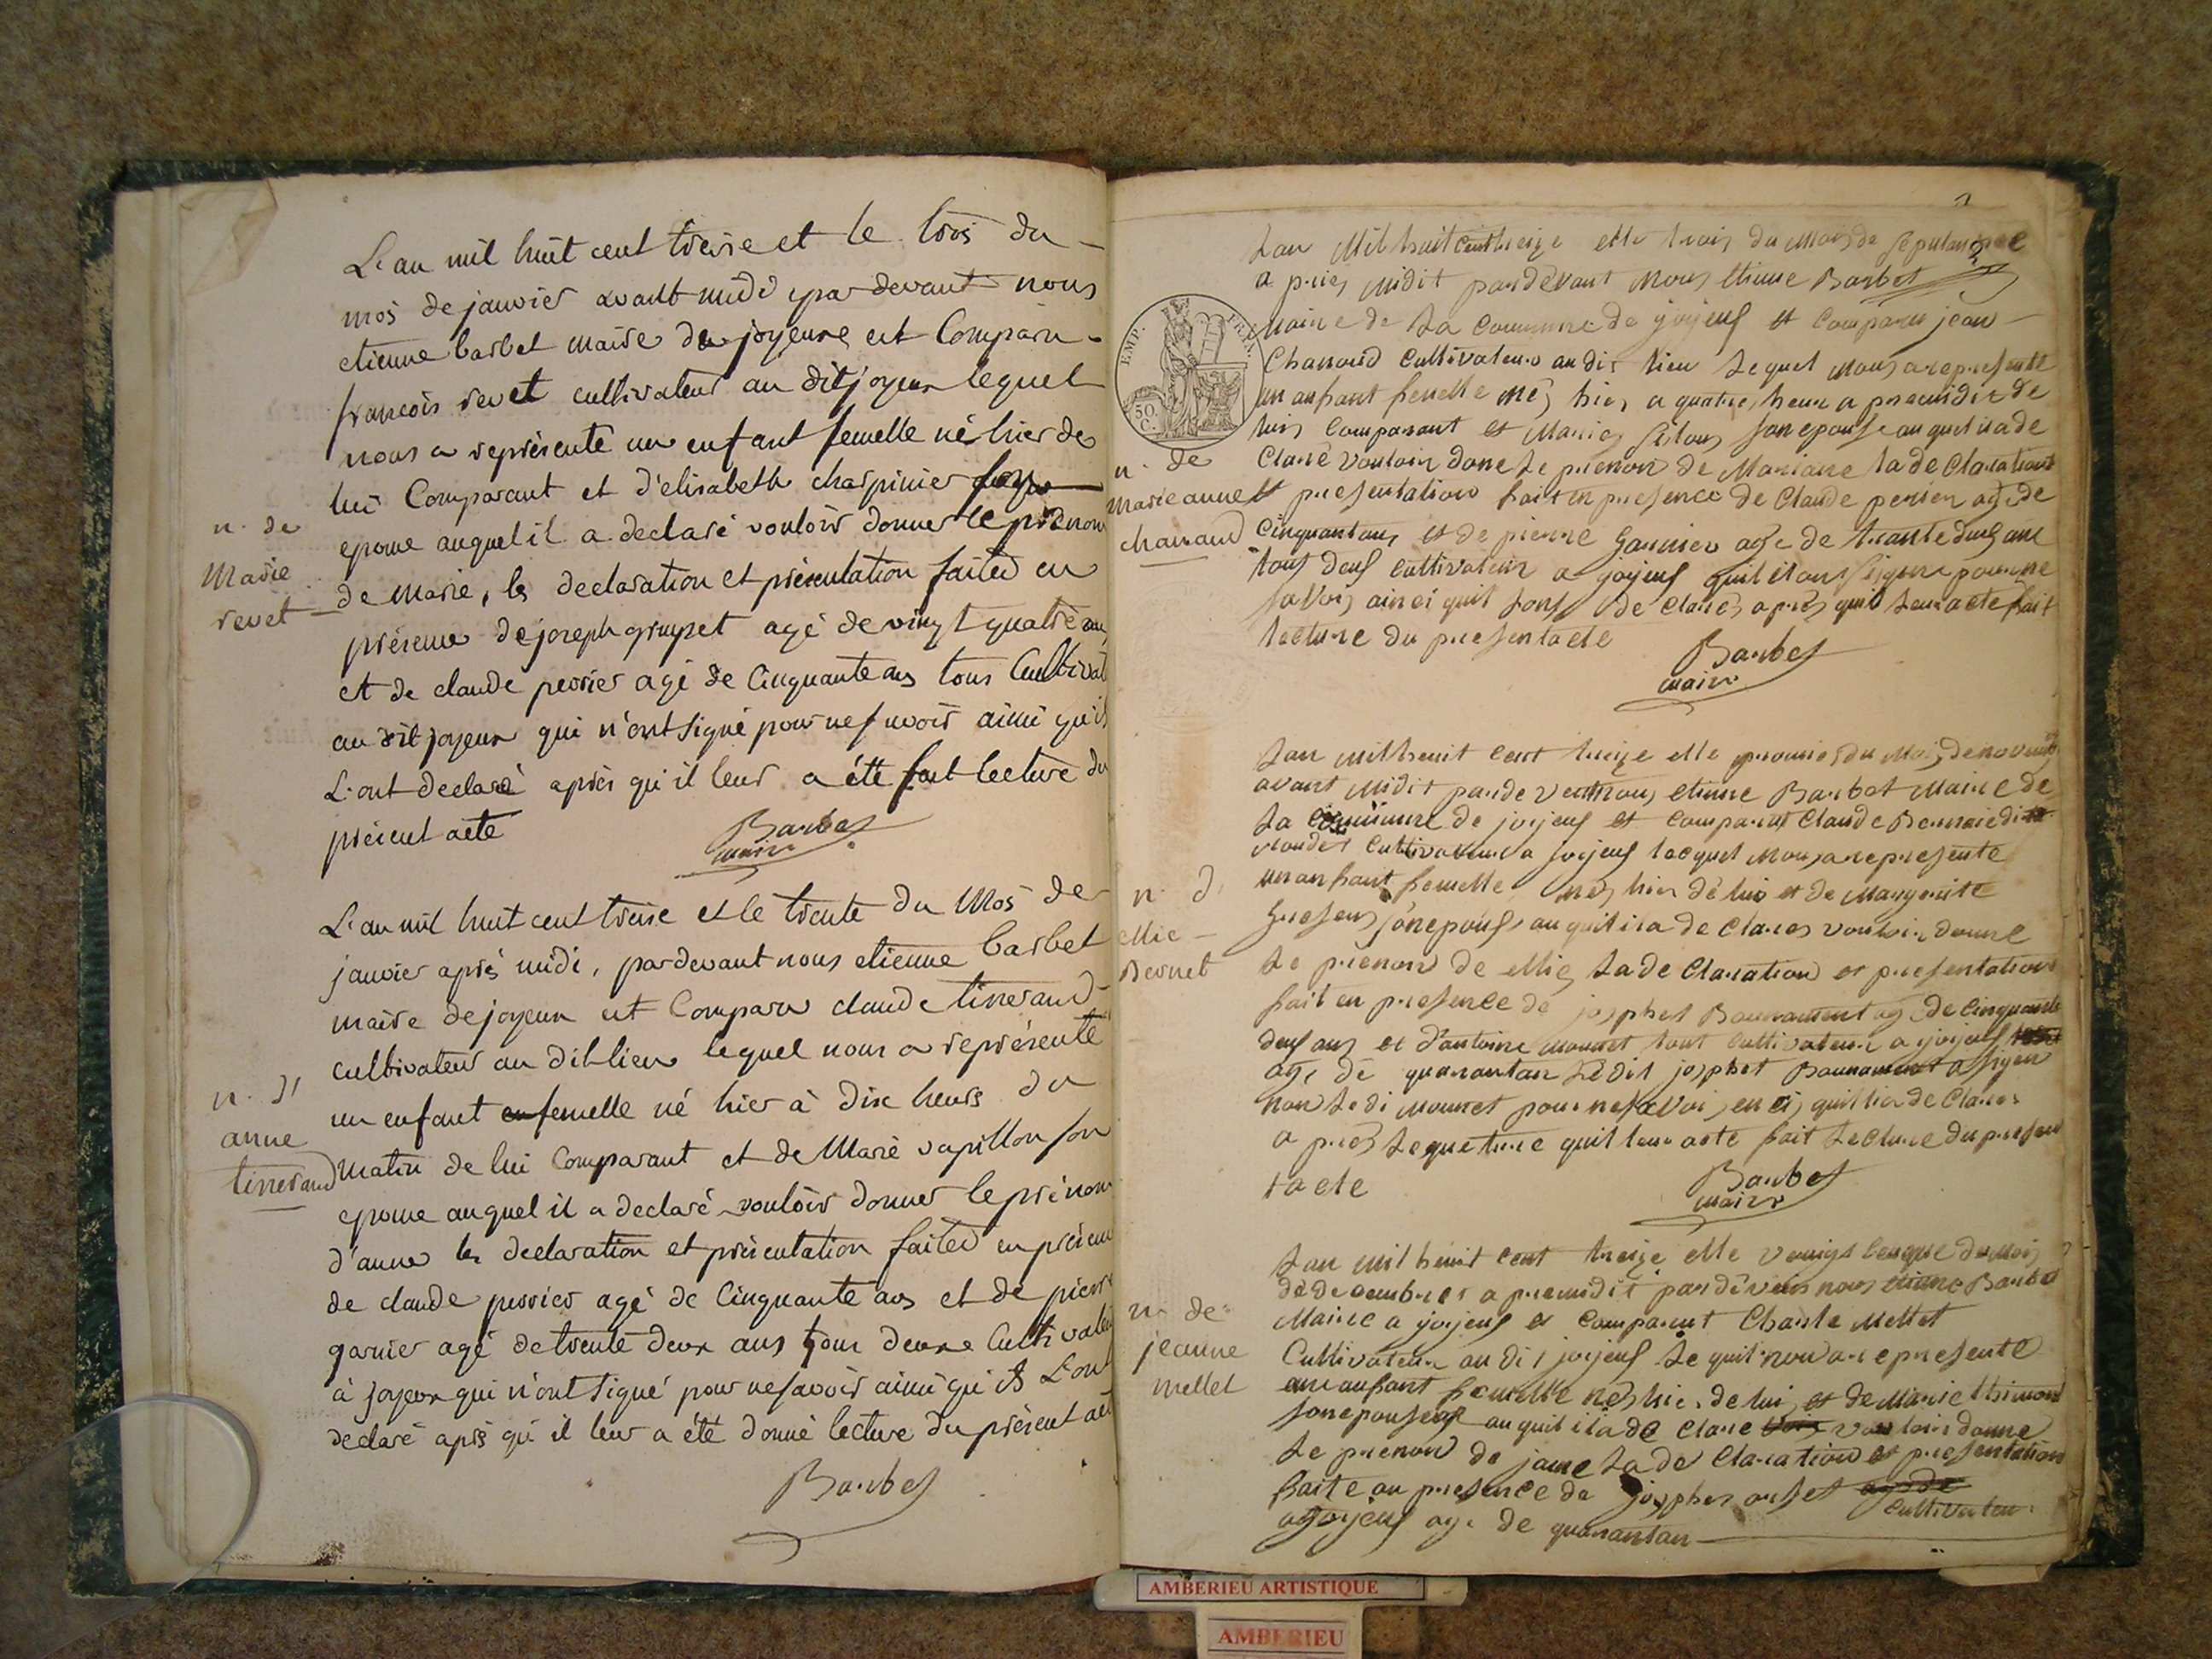 L'an mil huit cent treise et le trois du
mois de janvier avant midi par devant nous
etienne barbet maire de joyeux est Comparu
françois revet cultivateur au dit joyeux lequel
nous a représenté un enfant femelle né hier de
lui Comparant et d'elisabeth charpinier son
n. de
Marie
revet
epouse auquel il a declaré vouloir donner le prénom
de marie, les declaration et présentation faites en
présence de joseph grupet agé de vingt quatre ans
et de claude perrier agé de Cinquante ans tous Cultivat
au dit joyeux qui n'ont signé pour ne savoir ainsi qu'ils
L'ont declaré après qu'il leur a été fait lecture du
présent acte
Barbet
maire
L'an mil huit cent treise et le trente du Mois de
janvier après midi, pardevant nous etienne barbet
maire de joyeux est Comparu claude tisserand
cultivateur au dit lieu lequel nous a représenté
n. d'
anne
tisserand
un enfant femelle né hier à dix heurs du
matin de lui Comparant et de Marie papillon son
epouse auquel il a declaré vouloir donner le prénom
d'anne les declaration et présentation faites en présence
de claude perrier agé de Cinquante ans et de pierre
garnier agé de trente deux ans tous deux Cultivateu
à joyeux qui n'ont signé pour ne savoir ainsi qu'ils L'ont
declaré après qu'il leur a été donné lecture du présent act
Barbet
Lan Mil huit Cent treize et le trois du Mois de
a pries midit pardevant Nous etienne Barbet
EMP. FRAN.
50 C.
maire de La Commune de joyeus et Comparu jean
Chanaud Cultivateur au dit Lieu Lequel Nous a represente
un anfant femelle né hier a quatre heur a premidit de
luis Comparant et Marie son epouse auquel il a de
n. de
Marie anne
chanaud
Clare vouloir done Le prenon de Mariane La de Claration
et presentation fait en presence de Claude perier age de
Cinquantans et de pierre Garnier age de trante deus ans
tous deus Cultivateur a joyeus
savoir ainci quil Lons de Clares apres quil Leur a ete fait
Lecture du present acte
Barbet
maire
Lan mil heuit Cent treize elle premier du Mois de novemb
avant Midit par de vent nous etienne Barbet Maire de
La Commune de joyeus et Comparus Claude
Cultivateur a joyeus lecquel Nous a represente
n. d
ellie
Bernet
un anfant femelle nes hier de lui et de Margerite
son epous auquil il a de Clares vouloir donne
Le prenon de ellie La de Claration et presentation
fait en presence de josphet Bounamont age de Cinquante
deus ans et d'antoine mouret tout Cultivateur a joyeus
age de quarantan Le dit josphet Bounamont a signe
non Le di mouret pour ne savoir en ci quil lia de Clares
a pres Lequeture quil leur a ete fait Lecture du presen
t acte
Barbet
maire
Lan mil heuit Cent treize elle veingt Cenque du mois
de decembres a premidit par de vens nous etienne Barbet
n. de
jeanne
mellet
Maire a joyeus et Comparut Charle Mellet
Cultivateur au dit joyeus Le quil nou a represente
un anfant femelle nes hier de lui et de Marie thimon
son epouse auquil il a de Clare vouloir donne
Le prenon de jane La de Claration et presentation
faite an presence de josphes Cultivateur
a joyeus age de quarantan
AMBERIEU ARTISTIQUE
AMBERIEU